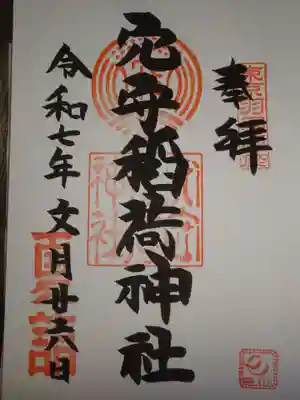 奉拝
穴守稲荷神社
令和七年文月廿六日